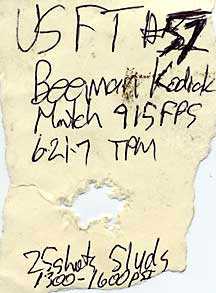 USFT #57
Beeman Kodiak
Match 915 FPS
621.7 TPM
25 shots 5 lyds
1300-1600 PSI